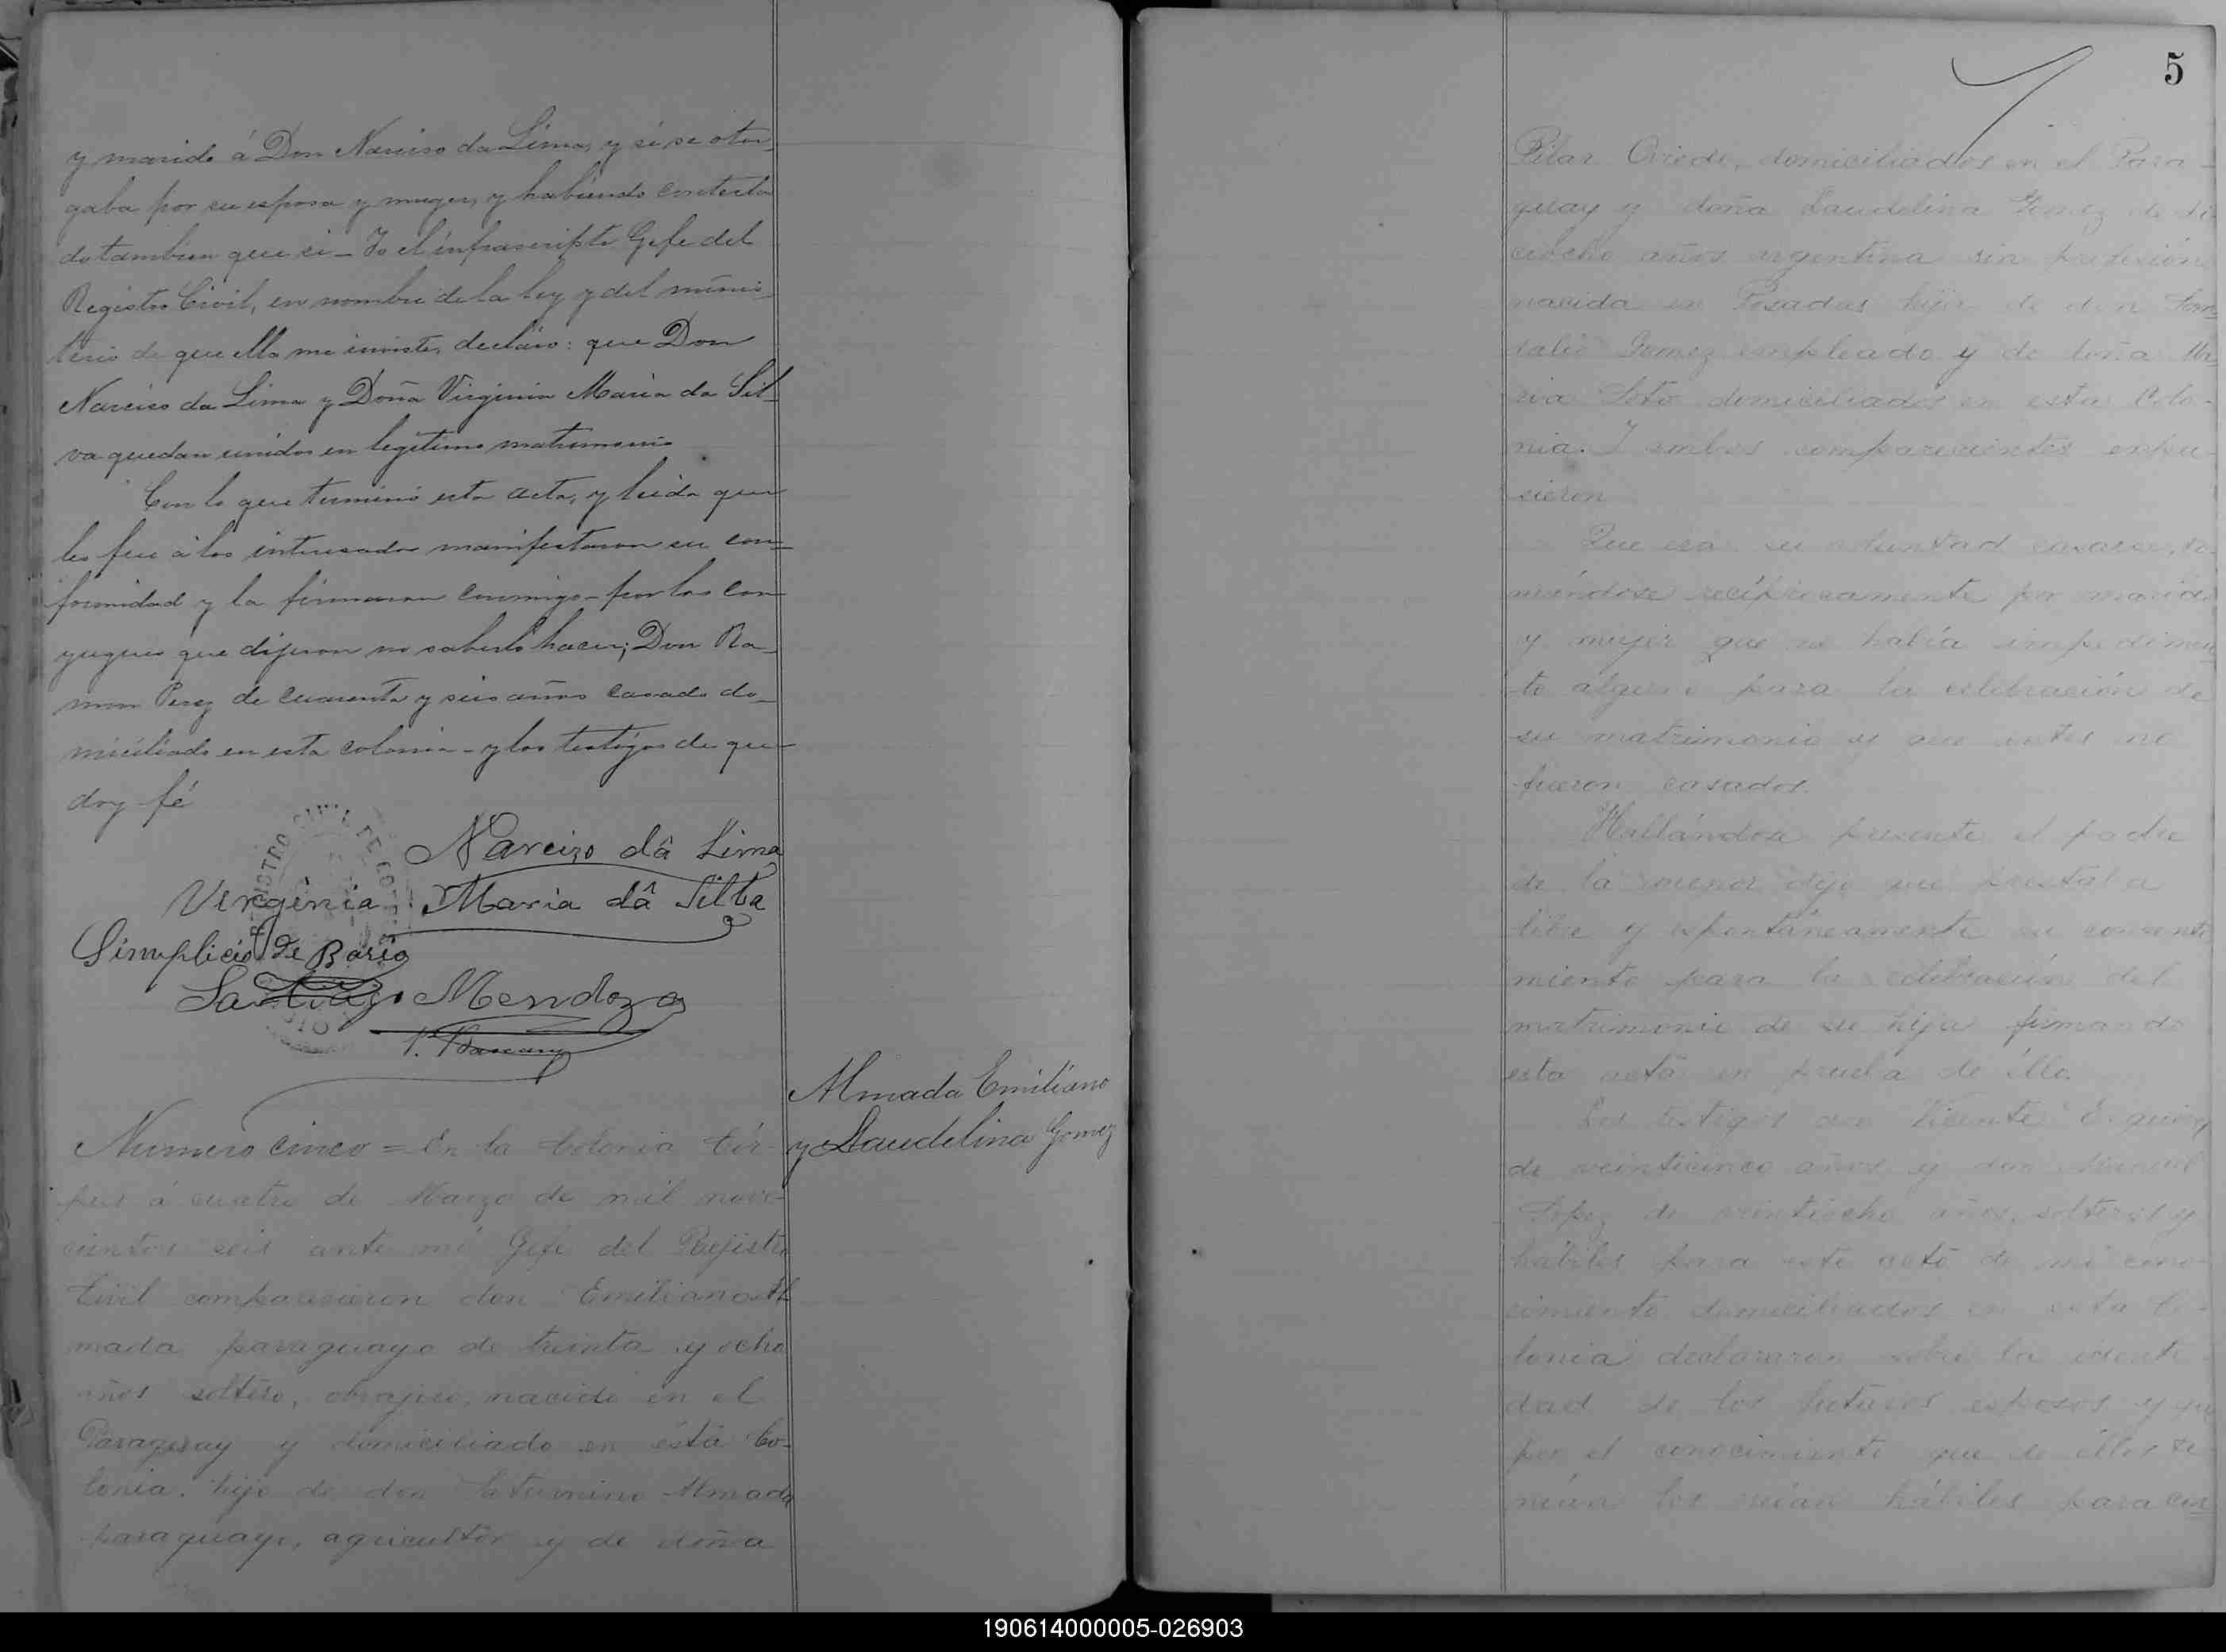 y marido á Don Narciso da Lima, y si se otor_
gaba por su esposa y muger, y habiendo contesta
do tambien que si _ Yo el infrascripto Gefe del
Registro Civil, en nombre de la ley y del minis_
terio de que ella me inviste, declaro: que Don
Narciso da Lima y Doña Virginia Maria da Sil_
va quedan unidos en legitimo matrimonio
Con lo que terminó esta acta, y leida que
les fue á los interesados manifestaron su con=
formidad y la firmaron conmigo _ por los con
yuges que dijeron no saberlo hacer; Don Ra_
mon Perez de cuarenta y seis años casado do_
miciliado en esta colonia _ y los testigos de que
doy fé
REGISTRO CIVIL DE
Narcizo dâ Lima
Virginia Maria dâ Silba
Simplicio de Bario
Santiago Mendoza
Almada Emiliano
y Laudelina Gomez
Numero cinco = En la Colonia Cór-
pus á cuatro de Marzo de mil nove-
cientos seis ante mi Gefe del Rejistro
Civil comparecieron don Emiliano Al
mada paraguayo de treinta y ocho
años soltero, obrajero, nacido en el
Paraguay y domiciliado en esta Co-
lonia. hijo de don Saturnino Almada
paraguayo, agricultor y de doña
5
Pilar Oviedo, domiciliados en el Para-
guay y doña Laudelina Gomez de di
eciocho años argentina sin profesión
nacida en Posadas hija de don
dalio Gomez empleado y de doña Ma
ria Soto domiciliados en esta Colo-
nia. I ambos comparecientes expu-
sieron
Que era su voluntad casarse, to-
mándose recíprocamente por marido
y mujer que no había impedimen
to alguno para la celebración de
su matrimonio y que antes no
fueron casados.
Hallándose presente el padre
de la menor dijo que prestaba
libre y espontáneamente su consenti
miento para la celebración del
matrimonio de su hija firmando
esta acta en prueba de ello.
Los testigos don Vicente
de veinticinco años y don Manuel
Lopez de veintiocho años, solteros y
hábiles para este acto de mi cono-
cimiento domiciliados en esta Co-
lonia declararon sobre la identi-
dad de los futuros esposos y que
por el conocimiento que de ellos te-
nian los creían hábiles para con
190614000005-026903